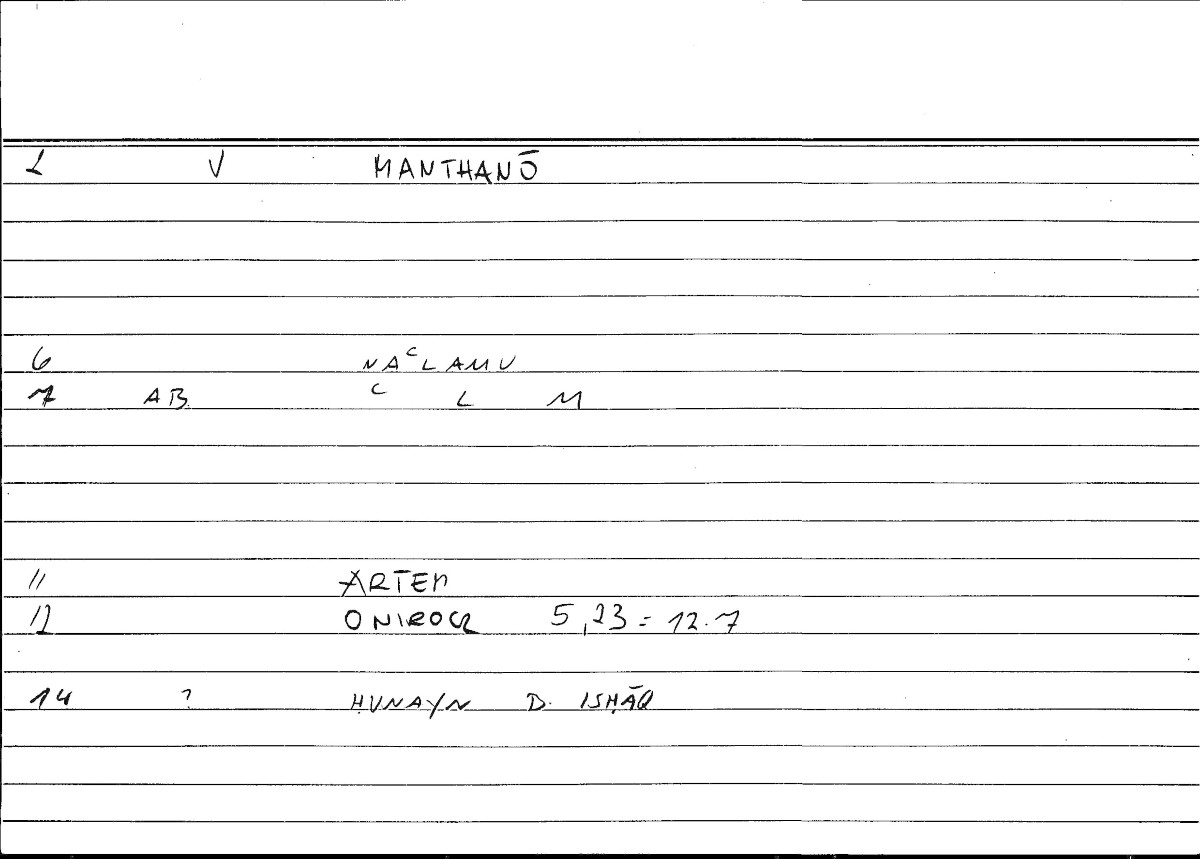 2 V MANTHANŌ
6 NAᶜLAMU
7 AB ᶜ L M
11 ARTEM
12 ONIROCR 5,23 = 12.7
14 ? ḤUNAYN B. ISḤĀQ